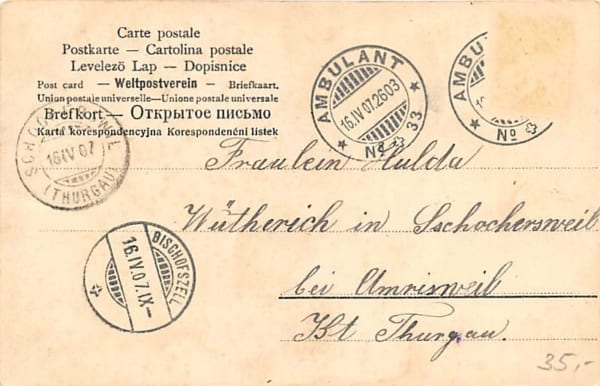 Carte postale
Postkarte — Cartolina postale
Levelezö Lap — Dopisnice
Post card — Weltpostverein — Briefkaart.
Union postale universelle — Unione postale universale
Brefkort — Открытое письмо
Karta korespondencyjna Korespondenéni listek
AMBULANT
16.IV 07.2603
Nº 33
AMBU
Nº
16 IV 07
(THURGAU)
Fraulein Hulda
Wütherich in Sschochersweil
bei Amrisweil
Kt Thurgau.
BISCHOFSZELL
16.IV.07.IX—
35,-